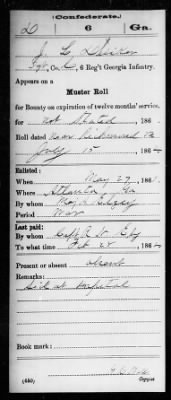 (Confederate.)
D 6 Ga.
J L
Co. C, 6 Reg't Georgia Infantry.
Appears on a
Muster Roll
for Bounty on expiration of twelve months' service,
for Not Stated, 186 .
Roll dated Near Richmond Va
July 15, 186
Enlisted:
When May 27, 1861.
Where Atlanta Ga
By whom Maj
Period War
Last paid:
By whom Capt
To what time Feb 28, 186
Present or absent absent
Remarks:
Sick at Hospital
Book mark:
(440) Copyist.